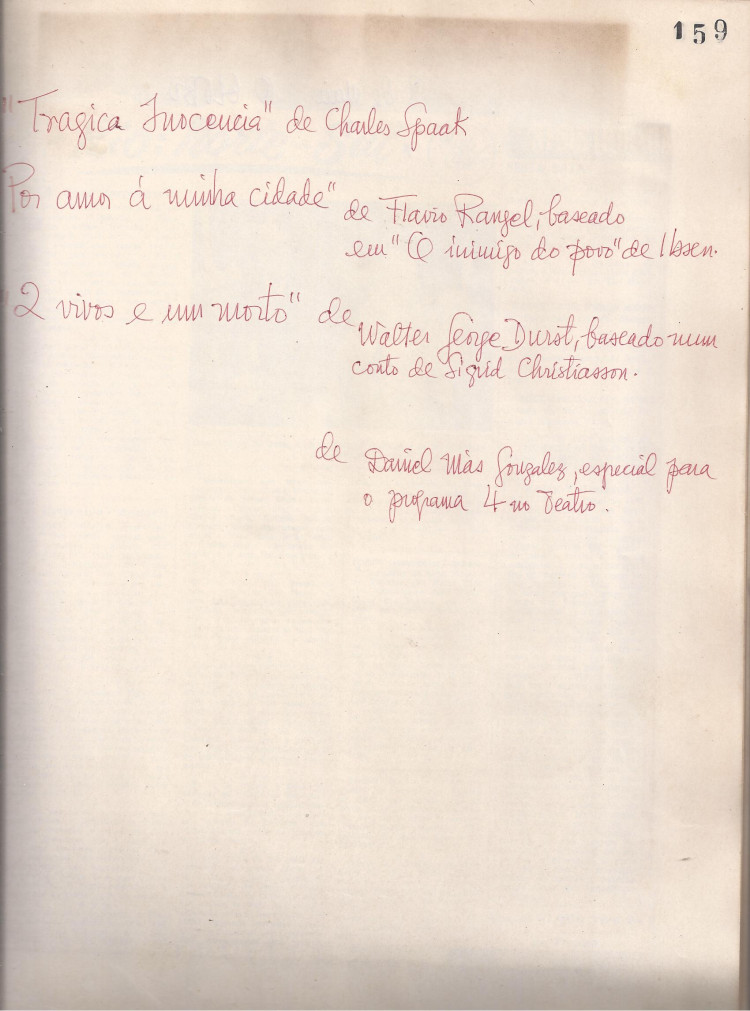 159
"Tragica Inocencia" de Charles Spaak
Por amor á minha cidade" de Flavio Rangel, baseado
em "O inimigo do povo" de Ibsen.
"2 vivos e um morto" de Walter George Durst, baseado num
conto de Sigrid Christiasson.
de Daniel Más Gonzalez, especial para
o programa 4 no Teatro.